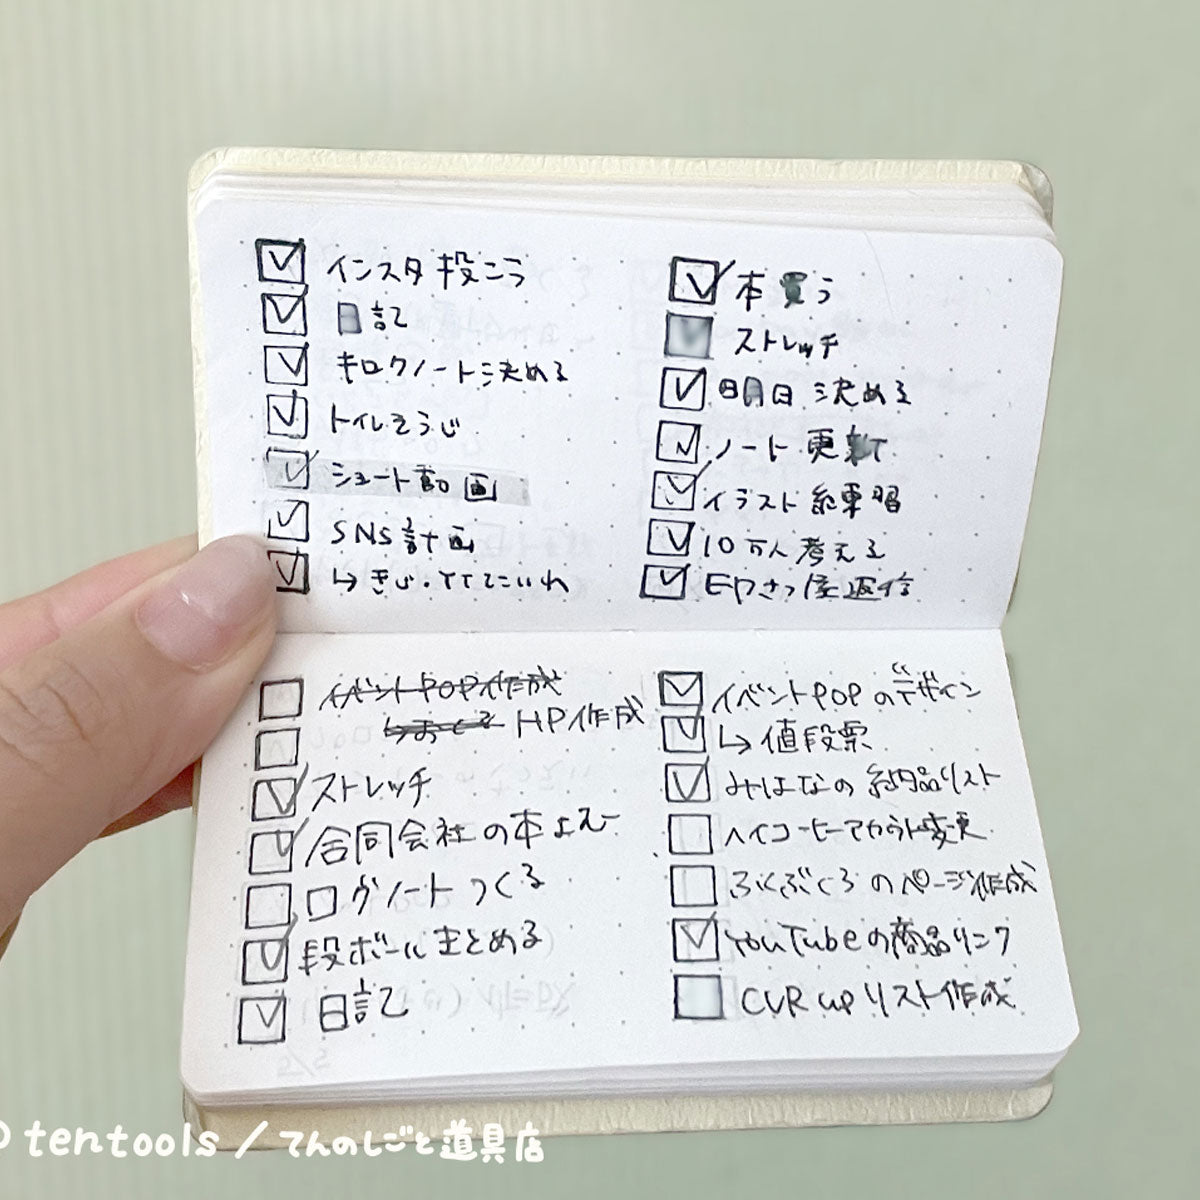 インスタ投こう
日記
キロクノート決める
トイレそうじ
ショート動画
SNS計画
↳
本買う
ストレッチ
明日決める
ノート更新
イラスト練習
10万人考える
返信
イベントPOP作成
HP作成
ストレッチ
合同会社の本よむ
ログノートつくる
段ボールまとめる
日記
イベントPOPのデザイン
↳値段票
みはなの納品リスト
ヘイコーヒーアカウント変更
ふくぶくろのページ作成
YouTubeの商品リンク
CVR upリスト作成
tentools/てんのしごと道具店